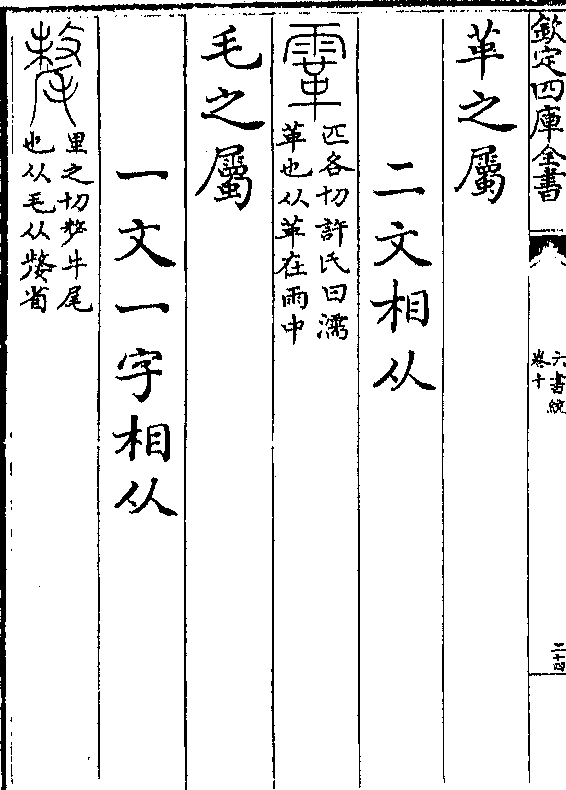 欽定四庫全書
六書統
卷十
二十四
革之屬
二文相从
䨣
匹各切許氏曰濡
革也从革在雨中
毛之屬
一文一字相从
氂
里之切犛牛尾
也从毛从犛省